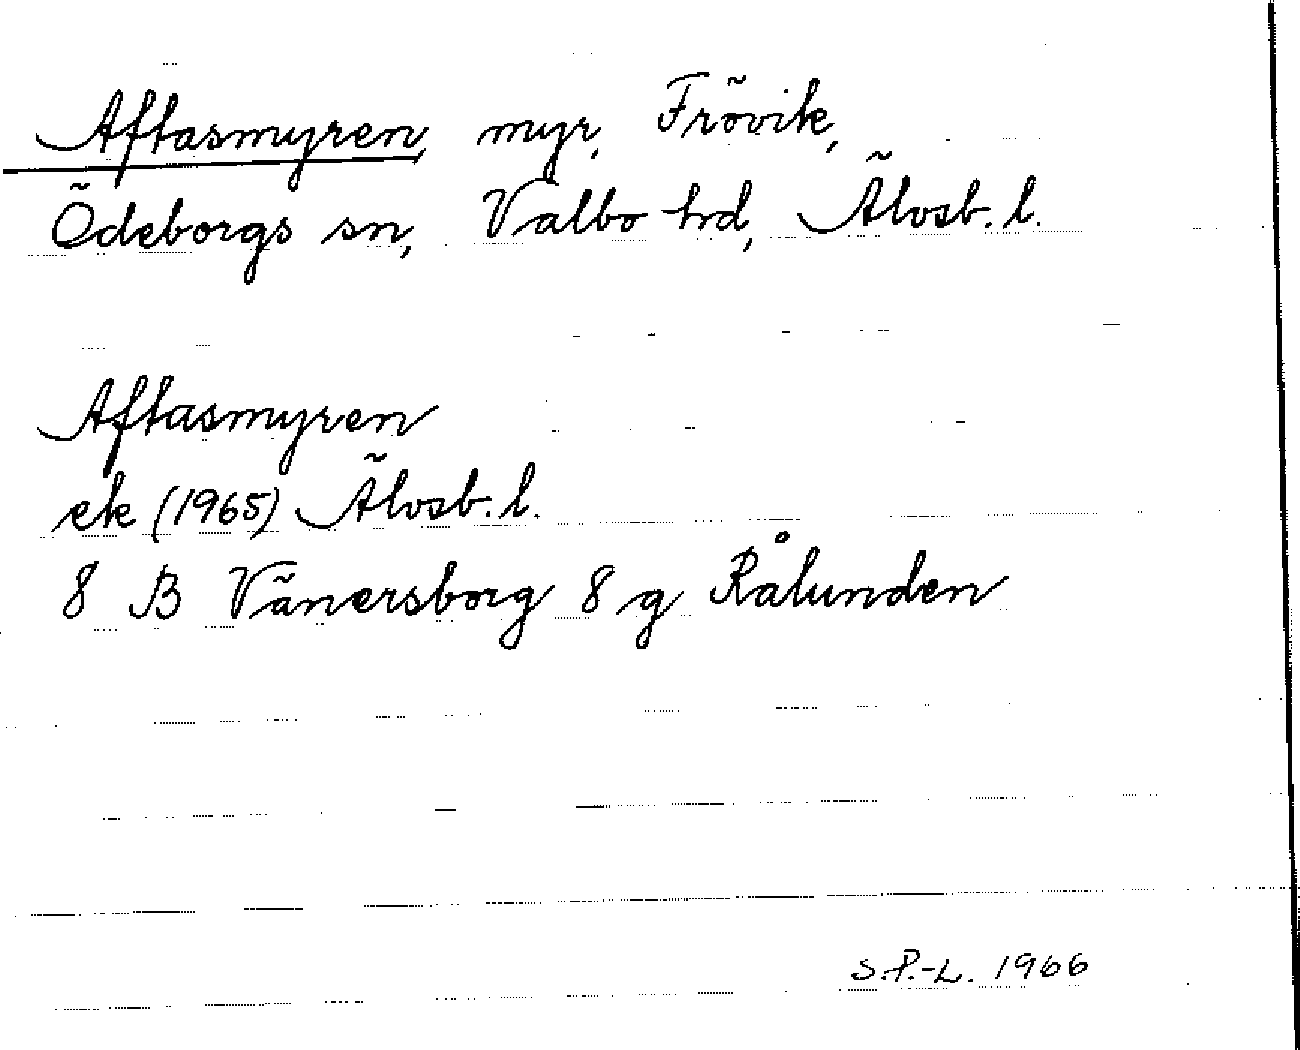 Aftasmyren, myr, Frövik,
Ödeborgs sn, Valbo hd, Älvsb. l.
Aftasmyren
ek (1965) Älvsb. l.
8 B Vänersborg 8 g Rålunden
S.P.-L. 1966